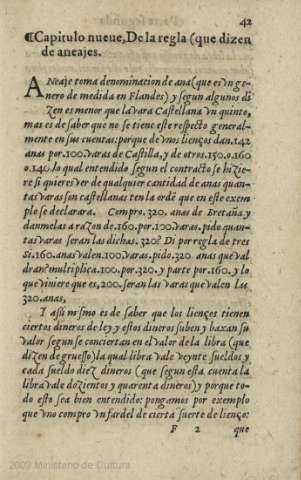 42
¶Capitulo nueue, De la regla (que dizen
de aneajes.
ANeaje toma denominacion de ana (que es vn ge-
nero de medida en Flandes) y segun algunos di
zen es menor que la vara Castellana vn quinto,
mas es de saber que no se tiene este respecto general-
mente en sus cuentas: porque de vnos lienços dan.142
anas por.100.varas de Castilla, y de otros.150.o.160
o.140.lo qual entendido segun el contracto se hizie-
re si quieres ver de qualquier cantidad de anas quan-
tas varas son castellanas ten la ordē que en este exem
plo se declarara. Compro.320.anas de Bretaña y
danmelas a razon de.160.por.100.varas. pido quan-
tas varas seran las dichas.320? Di por regla de tres
Si.160.anas valen.100.varas.pido.320 anas que val
dran? multiplica.100.por.320.y parte por.160.y lo
que viniere que es,200.seran las varas que valen las
320.anas,
Y assi mismo es de saber que los lienços tienen
ciertos dineros de ley y estos dineros suben y baxan su
valor segun se conciertan en el valor de la libra (que
dizen de gruesso) la qual libra vale veynte sueldos y
cada sueldo diez dineros (que segun esta cuenta la
libra vale dozientos y quarenta dineros) y porque to-
do esto sea bien entendido: pongamos por exemplo
que vno compro vn fardel de cierta suerte de lienço:
F 2 que
2009 Ministerio de Cultura